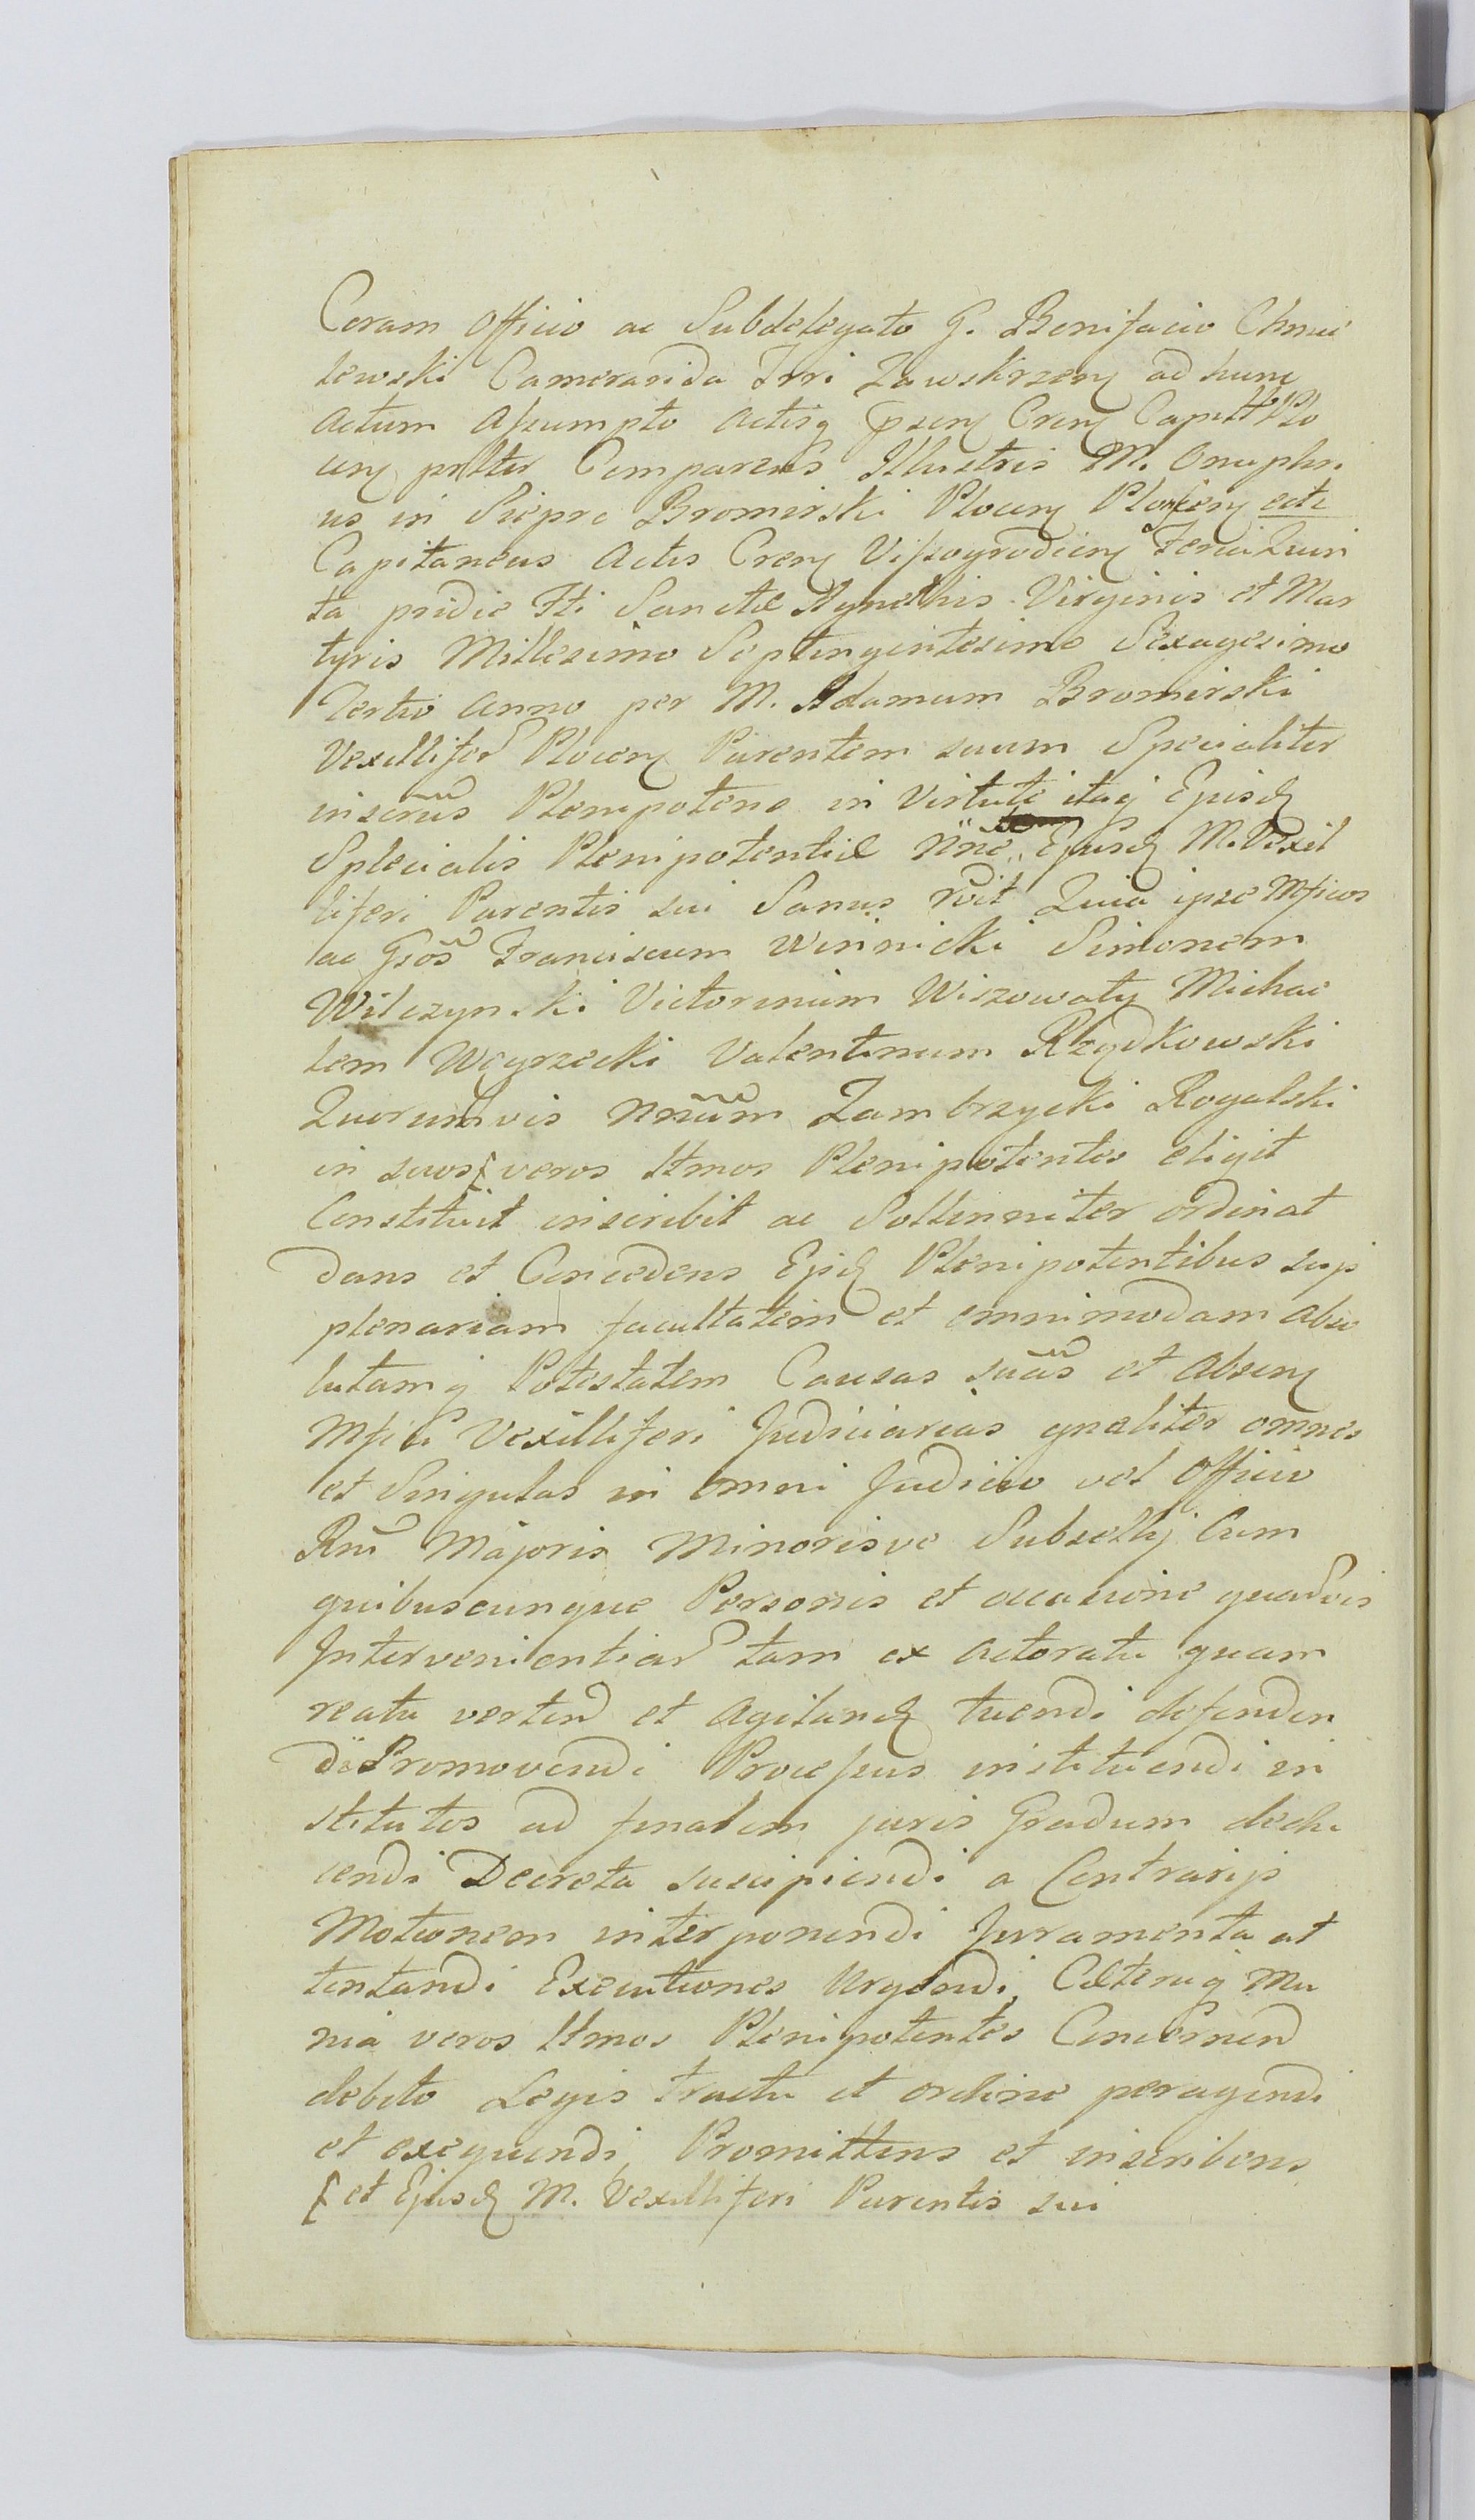 Coram Officio ac Subdelegato G. Bonifacio Chmie
lewski Camerarida Trri Zawskrzen ad hunc
actum Assumpto actisq pñsen Cren Capitt Plo
cen prlter Comparens Illustris M. Onuphri
us in Siepre Bromirski Plocen Plonsen ectc
Capitaneus Actis Cren Vissogrodien Feria Quin
ta pridie Fti Sanctæ Agnethis Virginis et Mar
tyris Millesimo Septingentesimo Sexagesimo
Tertio anno per M. Adamum Bromirski
Vexillifer Plocen Parentem suum Specialiter
inscrius Plenipotens in Virtute itaq Ejusd
Specialis Plenipotentiæ Nñe Ejusd M. Vexil
liferi Parentis sui Sanus rdit Quia ipse Mficos
ac Gsos Franciscum Winnicki Simonem
Wilczynski Victorinum Wiszowaty Michae
lem Węgrzecki Valentinum Rzędkowski
Quorumvis Nnium Zambrzycki Rogalski
in suos veros ltmos Plenipotentes eligit
Constituit inscribit ac Sollenniter ordinat
dans et Concedens Ejsd Plenipotentibus suis
plenariam facultatem et omnimodam abso
lutamq Potestatem Causas suas et Absen
Mfici Vexilliferi Judiciarias gnaliter omnes
et Singulas in omni Judicio vel Officio
Rni Majoris Minorisve Subsellij Cum
quibuscunque Personis et occasione quadvis
Intervenientiar tam ex actoratu quam
reatu verten et Agitand tuendi defenden
di Promovendi Processus instituendi in
stitutos ad finalem juris Gradum dedu
cendi Decreta suscipiendi a Contrarijs
Motionem interponendi Juramenta at
tentandi Executiones Urgendi, Cæteraq Mu
nia veros ltmos Plenipotentes Concernen
debito Legis tractu et ordine peragendi
et exequendi, Promittens et inscribens
[ et Ejusd M. Vexilliferi Parentis sui